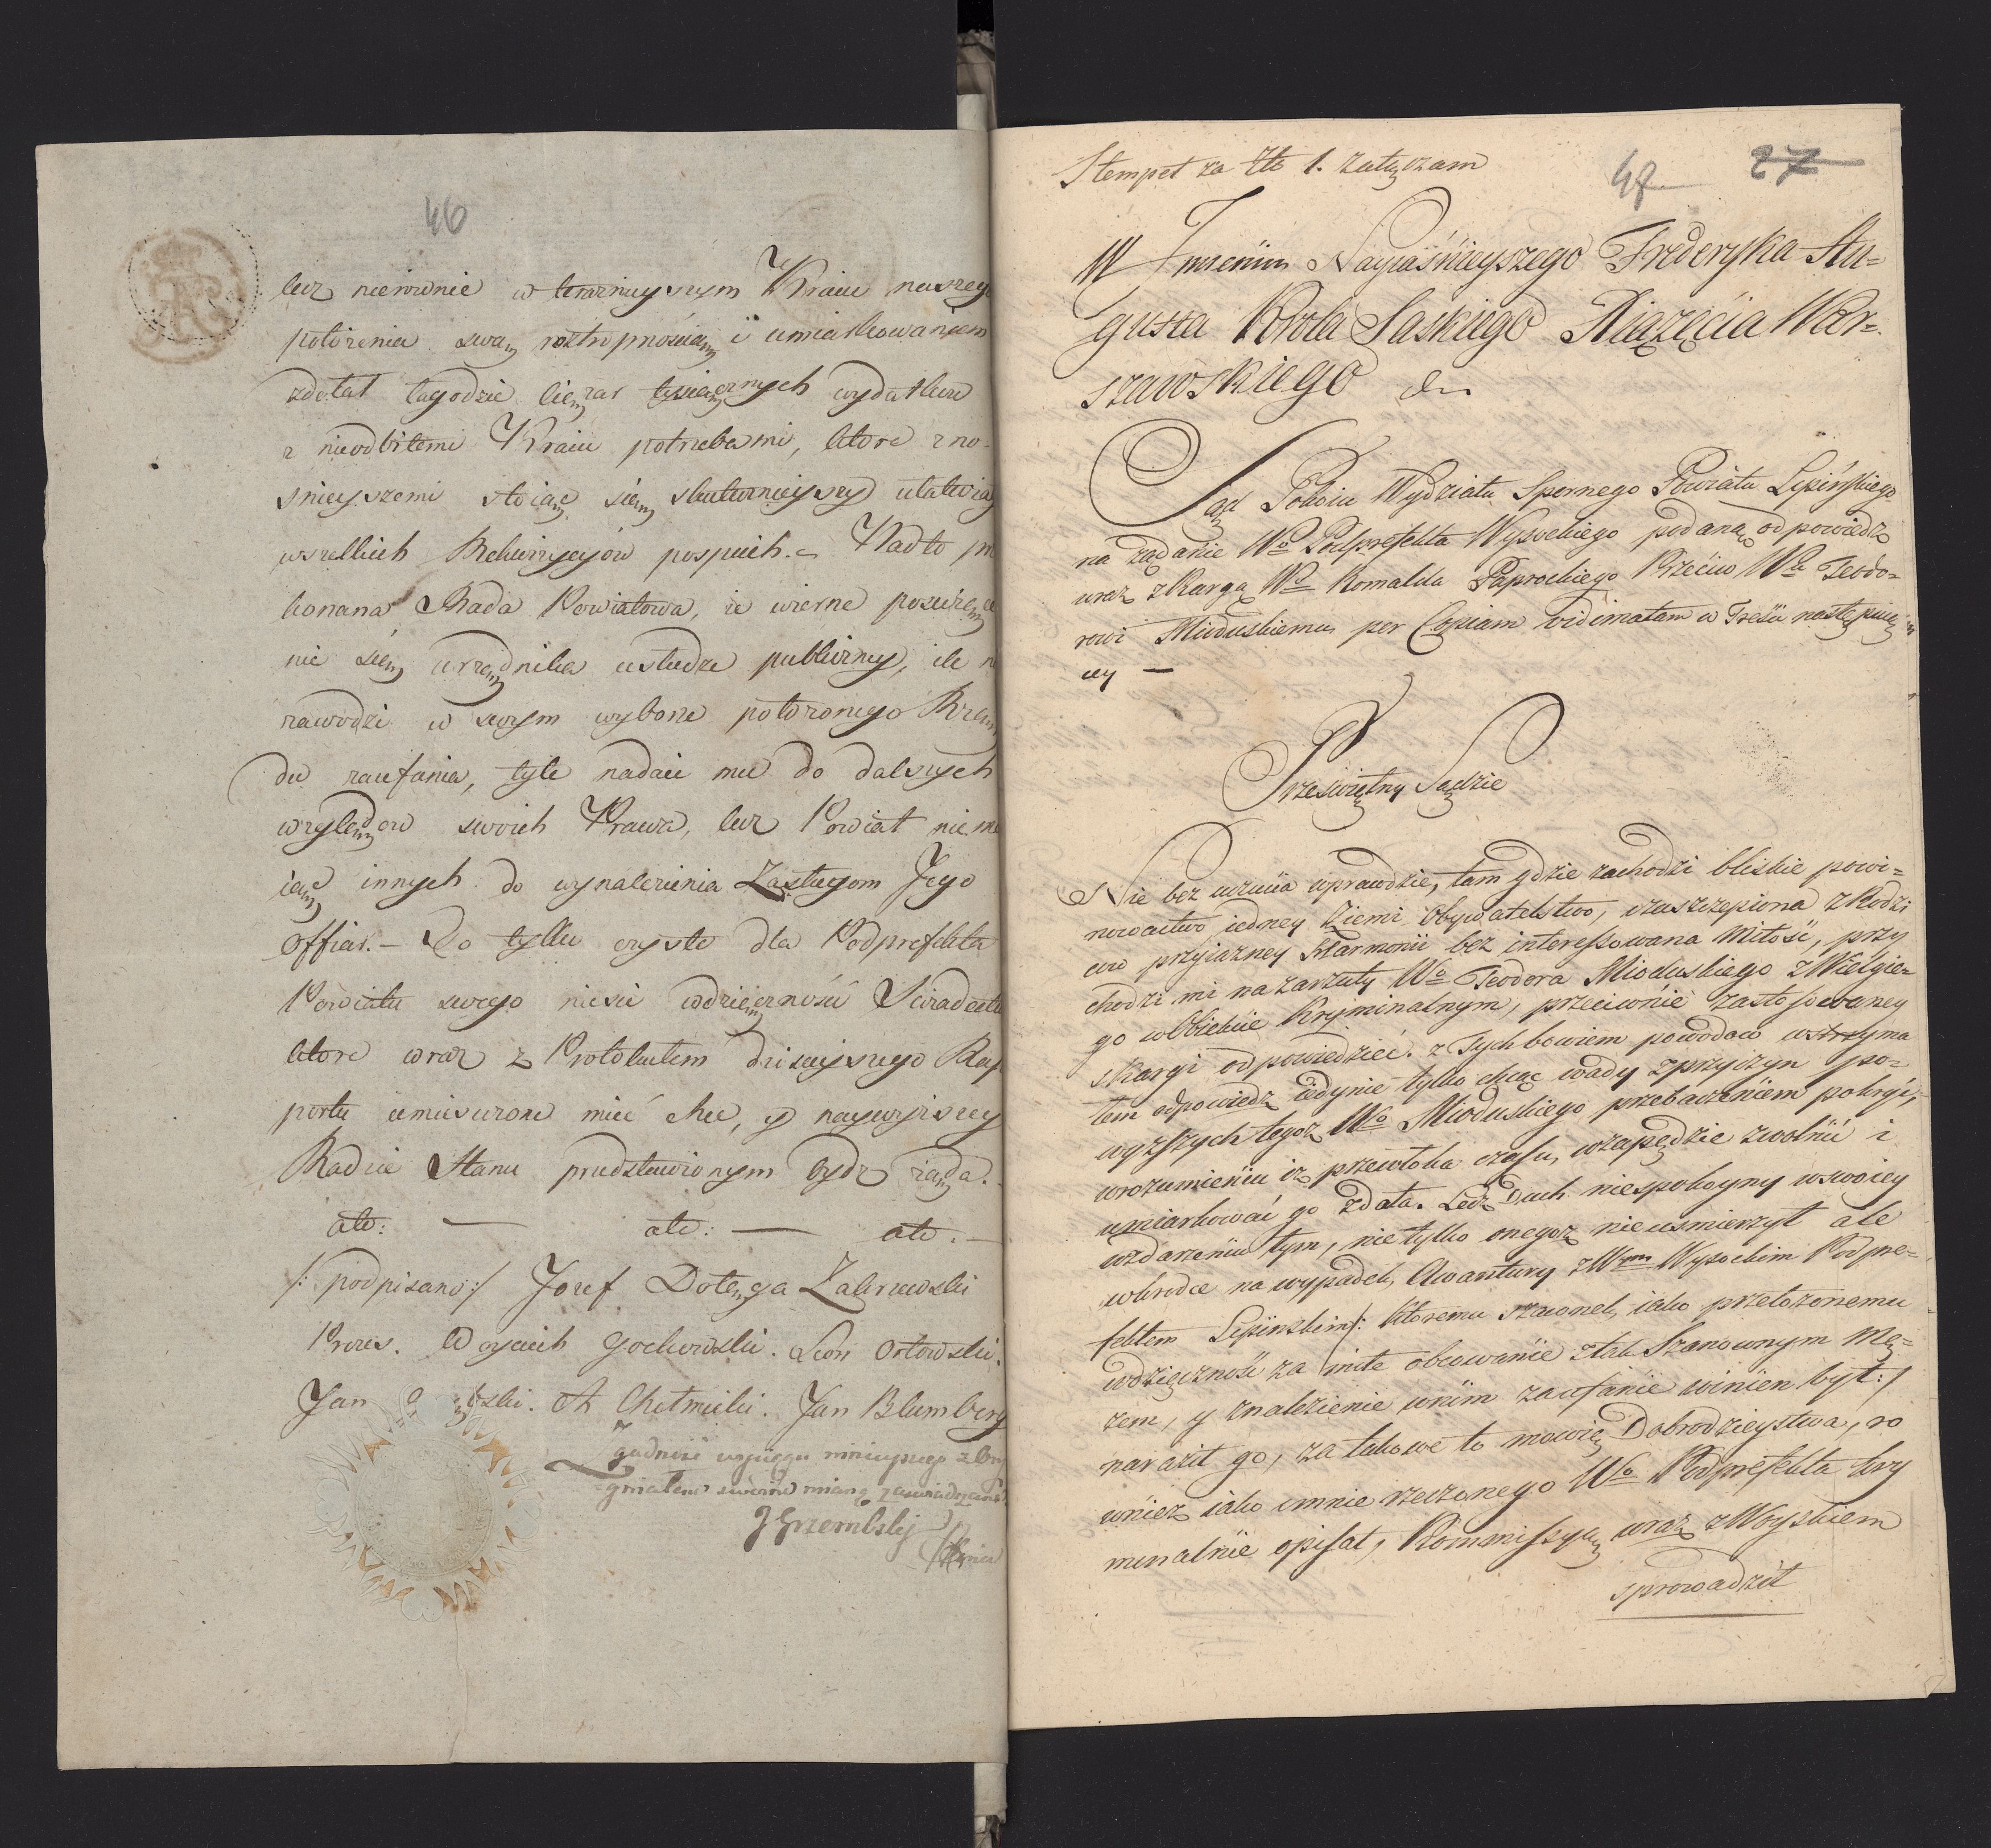 46
lecz nierownie w teraznieyszym Kraiu naszego
położenia swą roztropnością i umiarkowaniem
zdołał łagodzić cięzar tysiącznych wydatkow
z nieodbitemi Kraiu potrzebami, ktore zno-
śnieyszemi stoiąc się skutecznieyszy ułatwia
wszelkich Rekwizycyow pospiech. Nadto prze
konana Rada Powiatowa, ie wierne poświęce
nie się urzędnika usłudze publiczney, ile n
zawodzi w swym wyborze położonego Rzą
du zaufania, tyle nadaie mu do dalszych
względow swoich Prawa, lecz Powiat nie ma
iąc innych do wynalezienia Zasługom Jego
offiar. - Do tylko czyste dla Podprefekta
Powiatu swego niesie wdzięczności Swiadectwo
ktore wraz z Protokułem dzisieyszego Rap
portu umieszczone mieć chce, y naywyższey
Radzie Stanu przedstawionym bydz ząda. -
etc: — etc: — etc. —
/: podpisano :/ Jozef Dołęga Zakrzewski
Prezes. Woyciech Gockowski. Leon Orłowski.
Jan bski. A Chełmicki. Jan Blumberg
Zgodność wyciągu ninieyszego z Ory
gniałem swoim mianą zaswiadczam
J Grzembski
Stempel za Złt 1. załączam
47 27
W Imieniu Nayiaśnieyszego Frederyka Au=
gusta Krola Saskiego Xiążęcia War=
szawskiego etc
Sąd Pokoiu Wydziału Spornego Powiatu Lipińskiego
na ządanie Wo Podprefekta Wysockiego podaną odpowiedz
wraz z Skargą Wo Romalda Paprockiego Przeciw Wo Teodo=
rowi Mioduskiemu per Copiam vidimatam w Treści następuią
cey —
Przeświętny Sądzie
Nie bez uczucia wprawdzie, tam gdzie zachodzi bliskie powi=
nowactwo iedney Ziemi Obywatelstwo, wszczepiona z Rodzi
ców przyiazney Harmonii bez interessowana Miłość, przy
chodzi mi na zarzuty Wo Teodora Mioduskiego z Wielgie=
go w Obiekcie Kryminalnym, przeciwnie zastosowaney
skargi odpowiedzieć. z Tych bowiem powodow wstrzyma
łem odpowiedz iedynie tylko chcąc wady z przyczyn po=
wyższych tegoż Wo Mioduskiego przebaczeniem pokryć,
wrozumieniu iz przewłoka czasu, wzapędzie zwolnić i
umiarkować go zdoła. Lecz Duch niespokoyny wswoiey
wzdarzeniu tym, nie tylko onegoz nieusmierzył ale
wkrodce na wypadek, Awantury z Wym Wysockim Podpre=
fektem Lipinskim /: Ktoremu szacunek, iako przełozonemu
wdzięcznosc za miłe obcowanie z tak Szanownym Mę=
żem, y znalezienie wnim zaufanie winien był :/
naraził go, za takowe to mowię Dobrodzieystwa, ro
wniez iako mnie rzeczonego Wo Podprefekta kry
minalnie opisał, Kommissyą wraz z Woyskiem
sprowadził